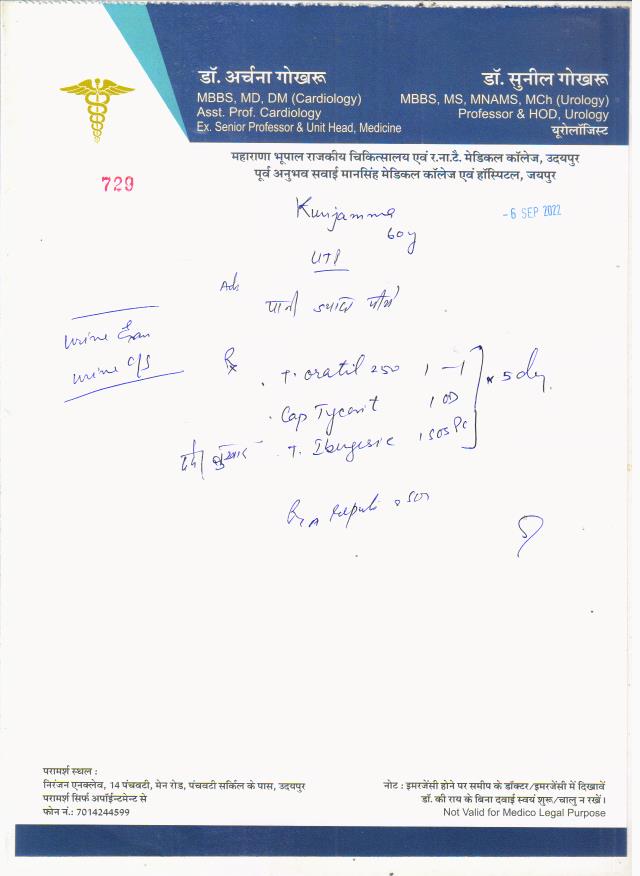 डॉ. अर्चना गोखरू
MBBS, MD, DM (Cardiology)
Asst. Prof. Cardiology
Ex. Senior Professor & Unit Head, Medicine
डॉ. सुनील गोखरू
MBBS, MS, MNAMS, MCh (Urology)
Professor & HOD, Urology
यूरोलॉजिस्ट
महाराणा भूपाल राजकीय चिकित्सालय एवं र.ना.टै. मेडिकल कॉलेज, उदयपुर
पूर्व अनुभव सवाई मानसिंह मेडिकल कॉलेज एवं हॉस्पिटल, जयपुर
729
- 6 SEP 2022
Kunjamma
60y
UTI
Adv
पानी ज्यादा पीये
Urine Exam
Urine C/S
Rx
T. Oratil 250 1 - 1 × 5 day
Cap Tycent 1 OD
दर्द/बुखार T. Ibugesic 1 SOS PC
परामर्श स्थल :
निरंजन एनक्लेव, 14 पंचवटी, मेन रोड, पंचवटी सर्किल के पास, उदयपुर
परामर्श सिर्फ अपॉईन्टमेन्ट से
फोन नं.: 7014244599
नोट : इमरजेंसी होने पर समीप के डॉक्टर/इमरजेंसी में दिखावें
डॉ. की राय के बिना दवाई स्वयं शुरू/चालु न रखें।
Not Valid for Medico Legal Purpose